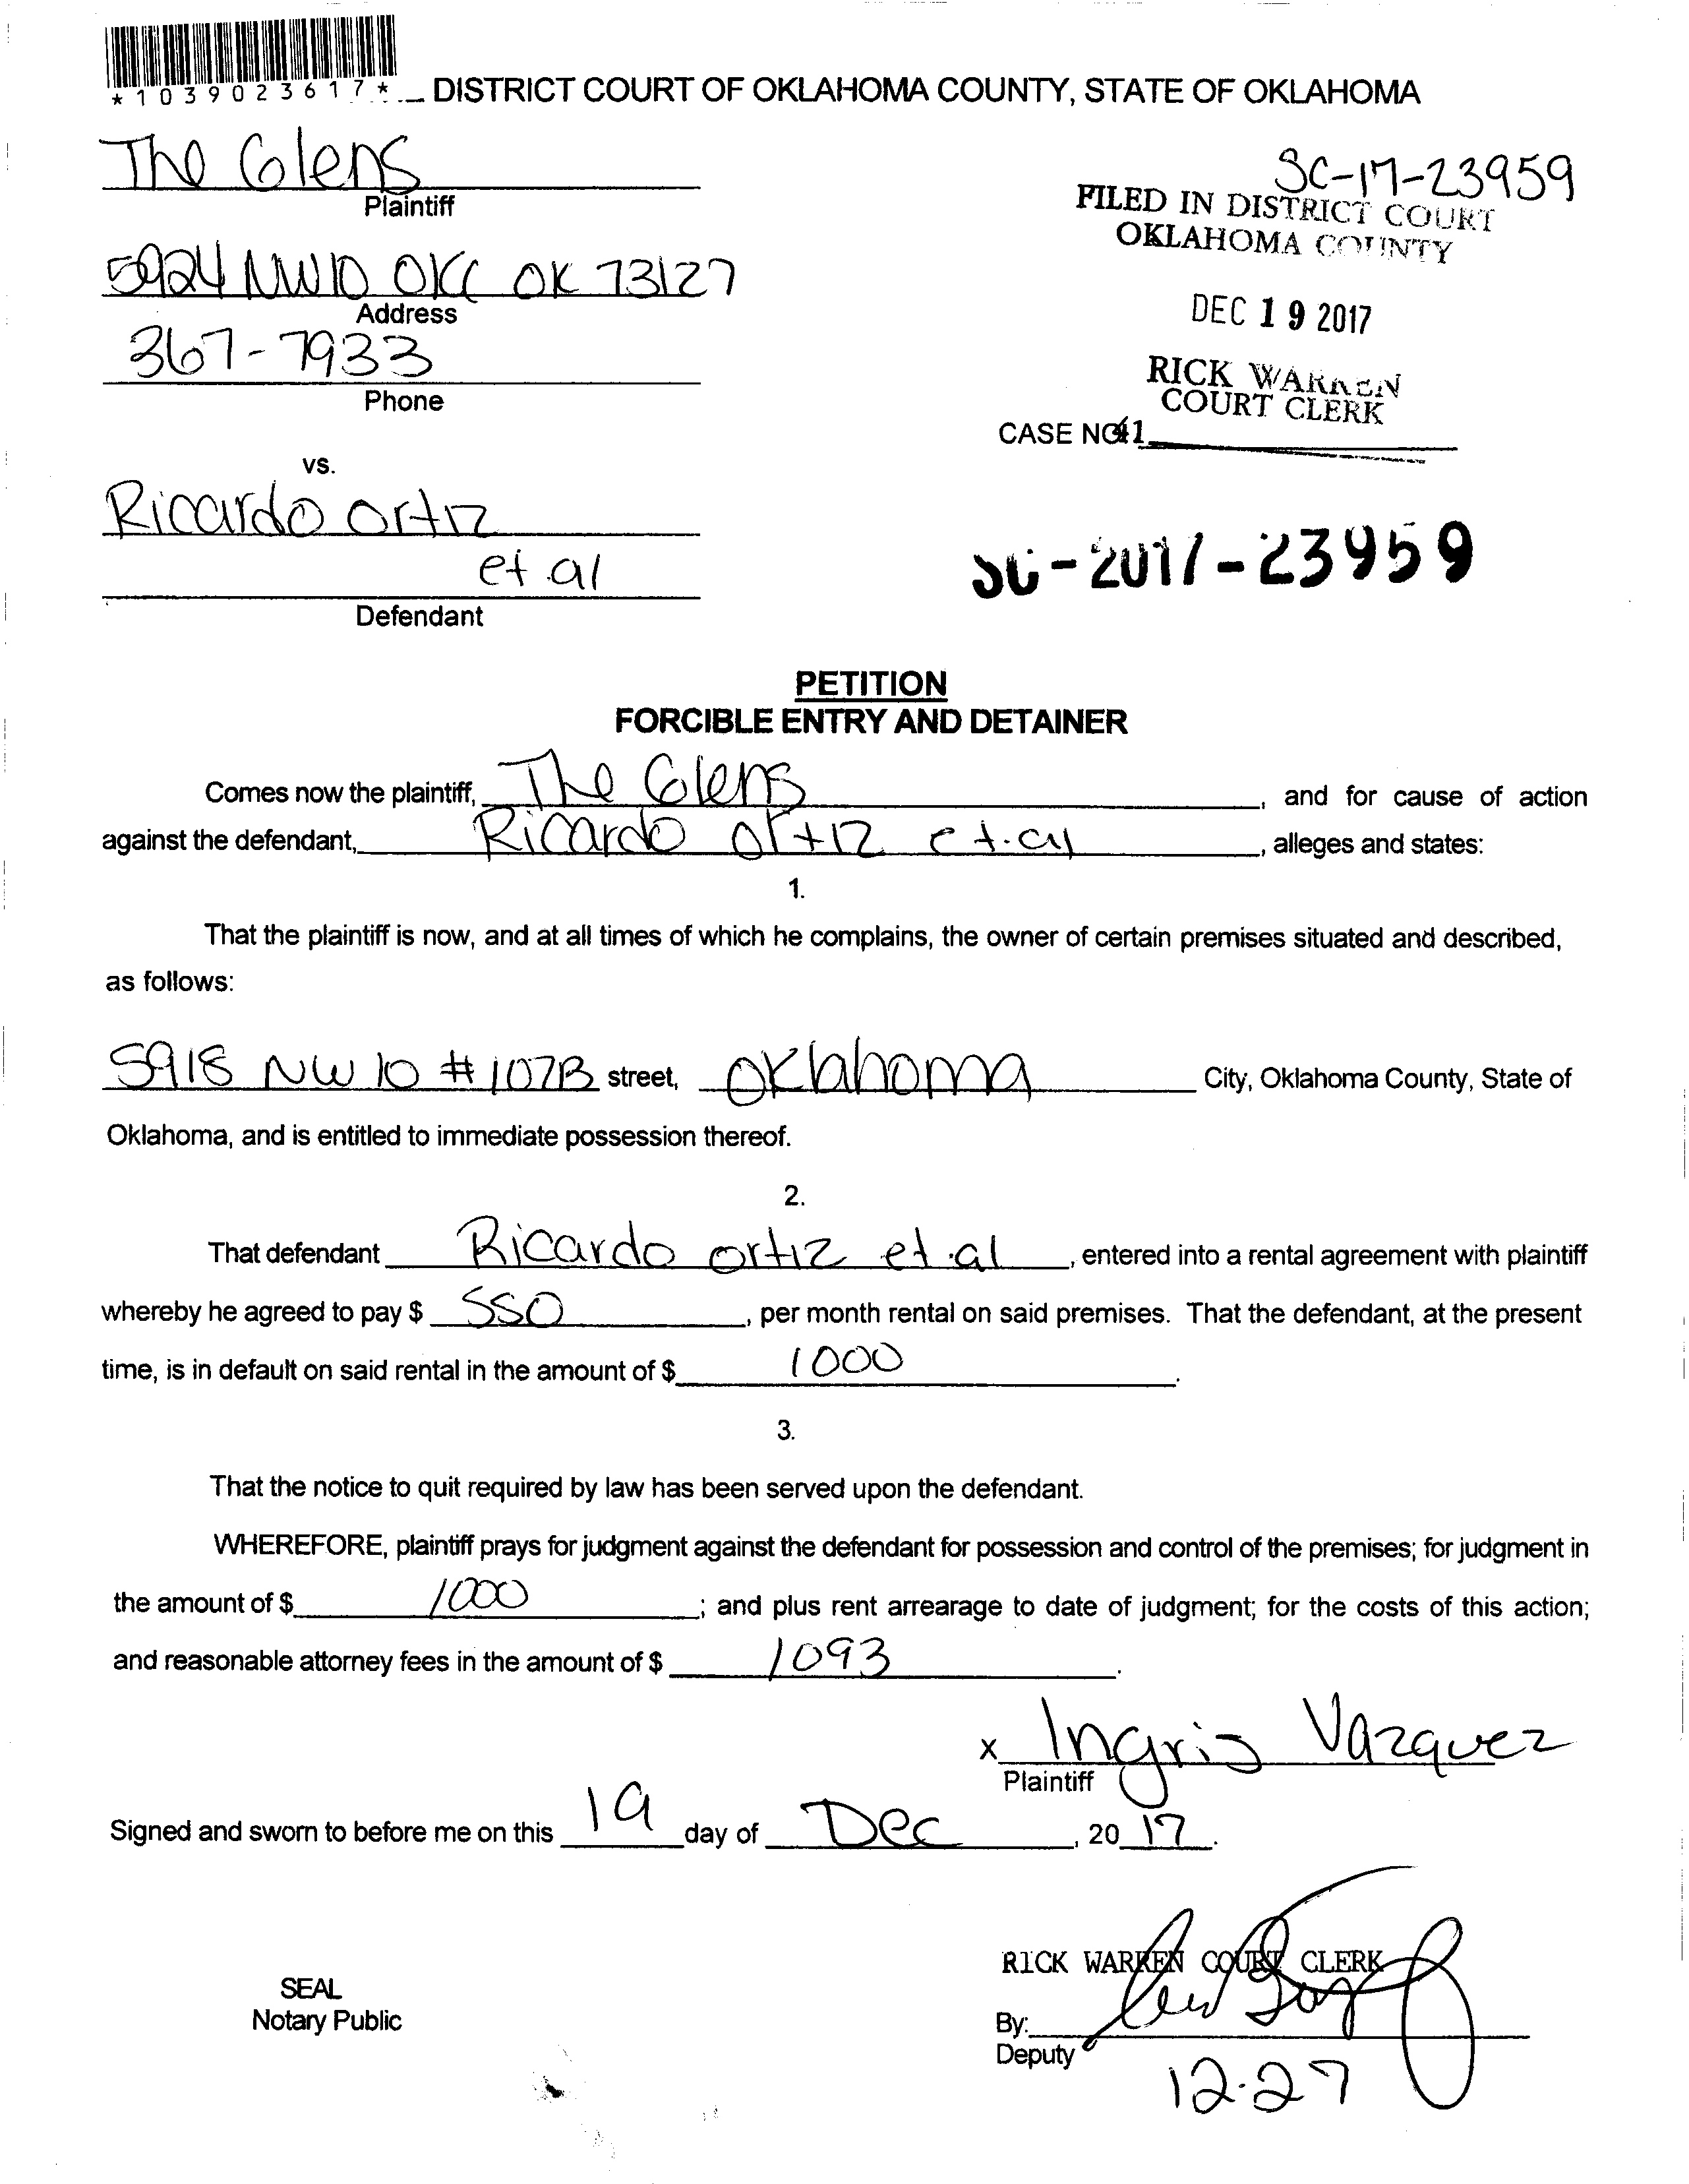 *1039023617*
DISTRICT COURT OF OKLAHOMA COUNTY, STATE OF OKLAHOMA
The Glens
Plaintiff
SC-17-23959
FILED IN DISTRICT COURT
OKLAHOMA COUNTY
5924 NW10 OKC OK 73127
Address
DEC 19 2017
367-7933
Phone
RICK WARREN
COURT CLERK
CASE NO. 41
vs.
Ricardo Ortiz
et al
Defendant
SC-2017-23959
PETITION
FORCIBLE ENTRY AND DETAINER
Comes now the plaintiff, The Glens, and for cause of action
against the defendant, Ricardo Ortiz et.al, alleges and states:
1.
That the plaintiff is now, and at all times of which he complains, the owner of certain premises situated and described,
as follows:
5918 NW 10 #107B street, Oklahoma City, Oklahoma County, State of
Oklahoma, and is entitled to immediate possession thereof.
2.
That defendant Ricardo Ortiz et.al, entered into a rental agreement with plaintiff
whereby he agreed to pay $ 550, per month rental on said premises. That the defendant, at the present
time, is in default on said rental in the amount of $ 1000.
3.
That the notice to quit required by law has been served upon the defendant.
WHEREFORE, plaintiff prays for judgment against the defendant for possession and control of the premises; for judgment in
the amount of $ 1000; and plus rent arrearage to date of judgment; for the costs of this action;
and reasonable attorney fees in the amount of $ 1093.
x Ingris Vazquez
Plaintiff
Signed and sworn to before me on this 19 day of Dec, 2017.
RICK WARREN COURT CLERK
SEAL
Notary Public
By:
Deputy
12-27